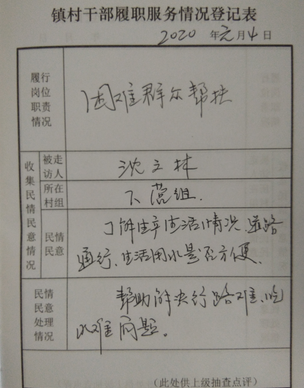 镇村干部履职服务情况登记表
2020 年元月4日
履行岗位职责情况
困难群众帮扶
收集民情民意情况
被走访人
沈立林
所在村组
下营组.
民情民意
了解生产生活情况 道路
通行.生活用水是否方便.
民情民意处理情况
帮助解决行路难、吃
水难问题.
(此处供上级抽查点评)